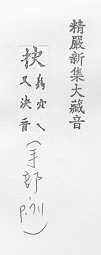 精嚴新集大藏音
抉 烏穴
又決音
(手部